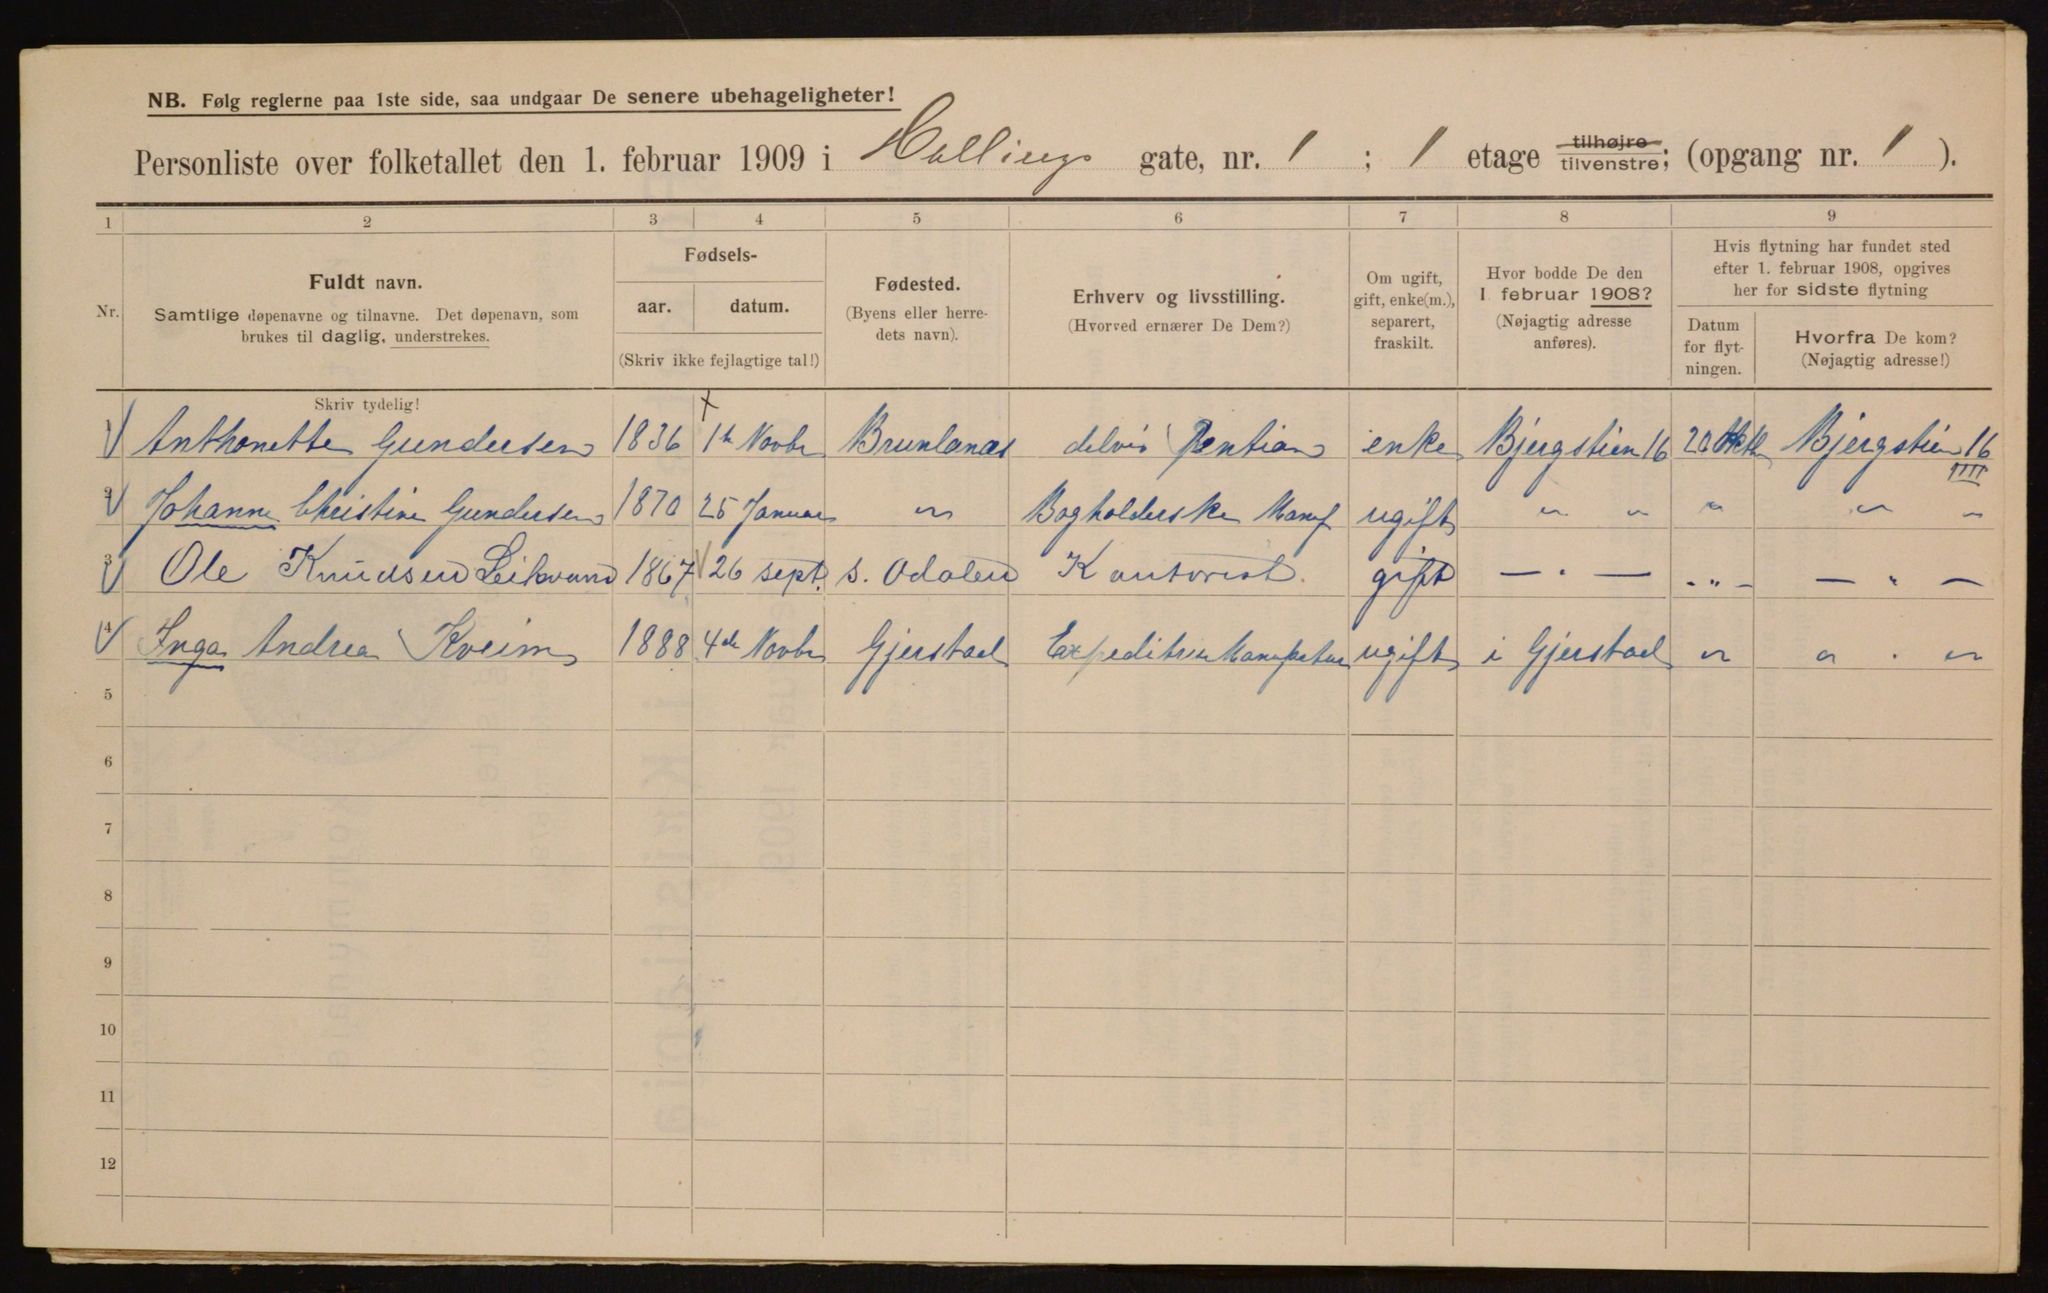 NB. Følg reglerne paa 1ste side, saa undgaar De senere ubehageligheter!
Personliste over folketallet den 1. februar 1909 i Hallings gate, nr. 1 ; 1 etage tilhøjre tilvenstre; (opgang nr. 1 ).
1 2 3 4 5 6 7 8 9
Nr.
Fuldt navn.
Samtlige døpenavne og tilnavne. Det døpenavn, som
brukes til daglig, understrekes.
Skriv tydelig!
Fødsels-
aar. datum.
(Skriv ikke fejlagtige tal!)
Fødested.
(Byens eller herre-
dets navn).
Erhverv og livsstilling.
(Hvorved ernærer De Dem?)
Om ugift,
gift, enke(m.),
separert,
fraskilt.
Hvor bodde De den
1 februar 1908?
(Nøjagtig adresse
anføres).
Hvis flytning har fundet sted
efter 1. februar 1908, opgives
her for sidste flytning
Datum
for flyt-
ningen.
Hvorfra De kom?
(Nøjagtig adresse!)
1 Anthonette Gundersen 1836 1ste Novbr Brunlanæs delvis Pention enke Bjergstien 16 20 Oktb Bjergstien 16 IIII
2 Johanne Christine Gundersen 1870 25 Januar " Bogholderske Manuf ugift " " " " "
3 Ole Knudsen 1867 26 sept. S. Odalen Kontorist. gift — " — " — " —
4 Inga Andrea Kveim 1888 4de Novbr Gjerstad Expeditrise Manufaktur ugift i Gjerstad " " . "
5
6
7
8
9
10
11
12